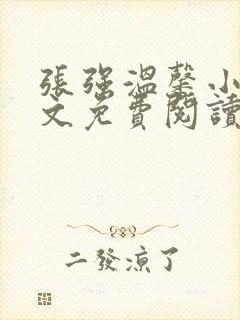 張強溫馨小
文免費閱讀
二發涼了